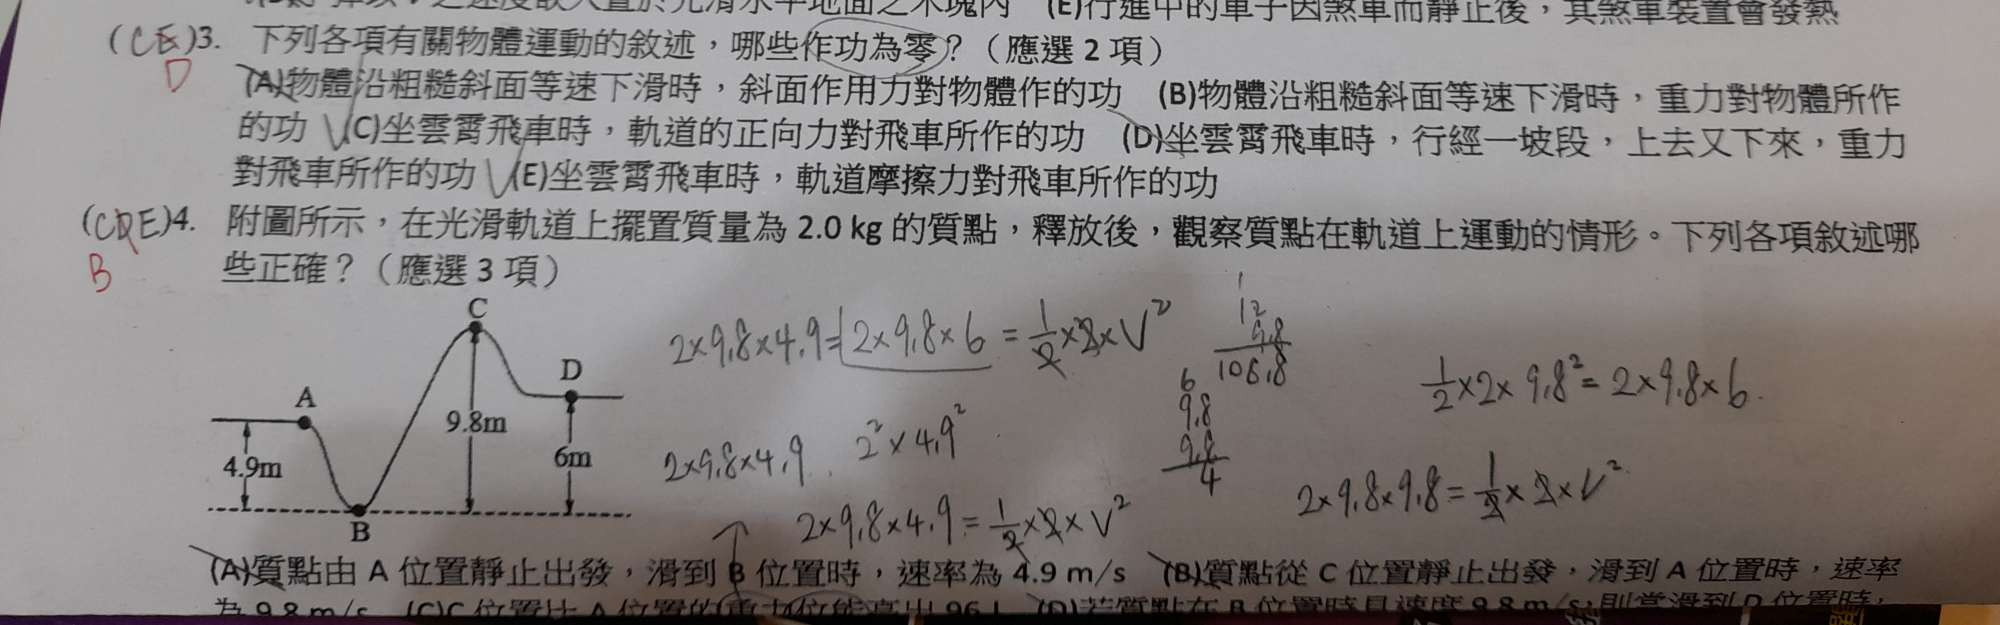 彈以 v 之速度嵌入置於光滑水平地面之木塊內 (E)行進中的車子因煞車而靜止後，其煞車裝置會發熱
(CE)3. 下列各項有關物體運動的敘述，哪些作功為零？（應選 2 項）
D
(A)物體沿粗糙斜面等速下滑時，斜面作用力對物體作的功 (B)物體沿粗糙斜面等速下滑時，重力對物體所作
的功 (C)坐雲霄飛車時，軌道的正向力對飛車所作的功 (D)坐雲霄飛車時，行經一坡段，上去又下來，重力
對飛車所作的功 (E)坐雲霄飛車時，軌道摩擦力對飛車所作的功
(CDE)4. 附圖所示，在光滑軌道上擺置質量為 2.0 kg 的質點，釋放後，觀察質點在軌道上運動的情形。下列各項敘述哪
B
些正確？（應選 3 項）
C
A
D
4.9m
9.8m
6m
B
2×9.8×4.9=2×9.8×6=1/2×2×V²
12
9.8
106.8
6
9.8
9.8
4
1/2×2×9.8²=2×9.8×6.
2×9.8×4.9. 2²×4.9²
2×9.8×4.9=1/2×2×V²
2×9.8×9.8=1/2×2×V²
(A)質點由 A 位置靜止出發，滑到 B 位置時，速率為 4.9 m/s (B)質點從 C 位置靜止出發，滑到 A 位置時，速率
為 9.8 m/s (C)C 位置比 A 位置的重力位能高出 96 J (D)若質點在 B 位置時具速度 9.8 m/s，則當滑到 D 位置時，